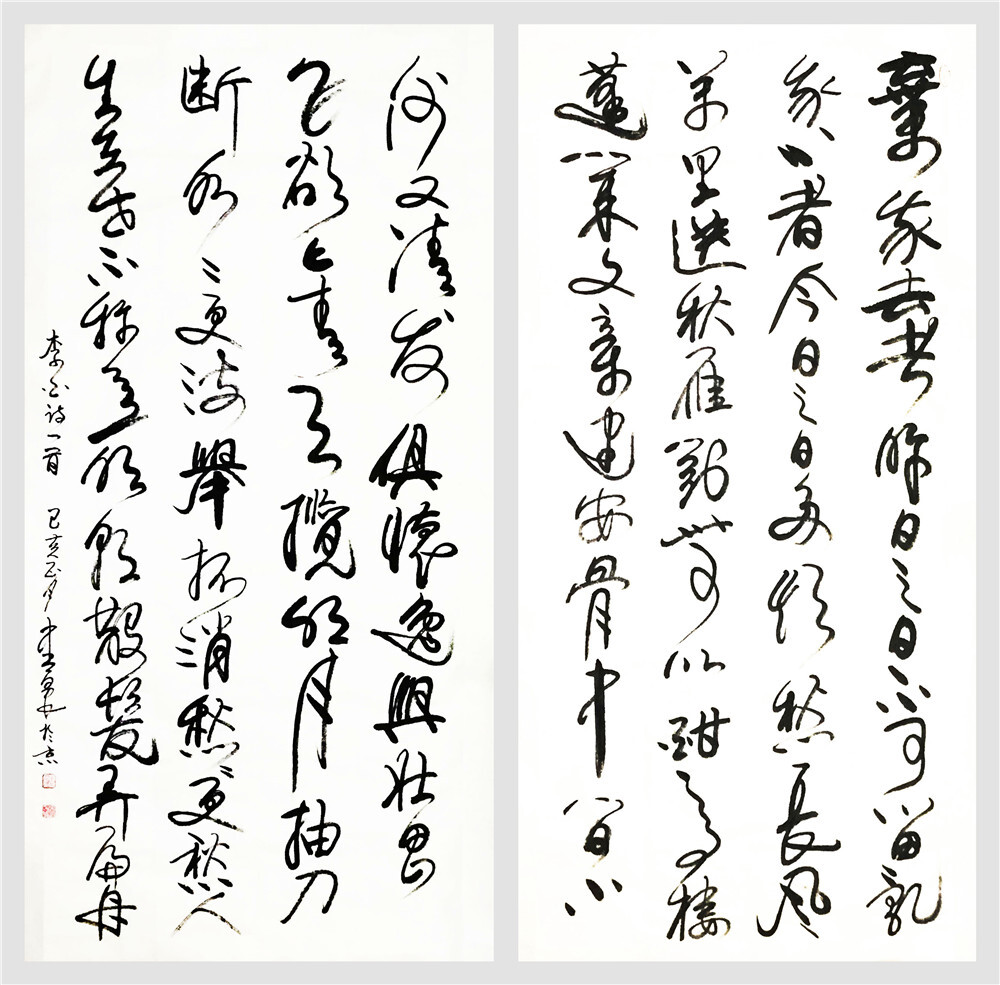 棄我去者昨日之日不可留亂
我心者今日之日多煩愁長風
萬里送秋雁對此可以酣高樓
蓬萊文章建安骨中間小
謝又清發俱懷逸興壯思
飞欲上青天攬明月抽刀
断水々更流舉杯消愁々更愁人
生在世不称意明朝散髮弄扁舟
李白诗一首 己亥正月 於京